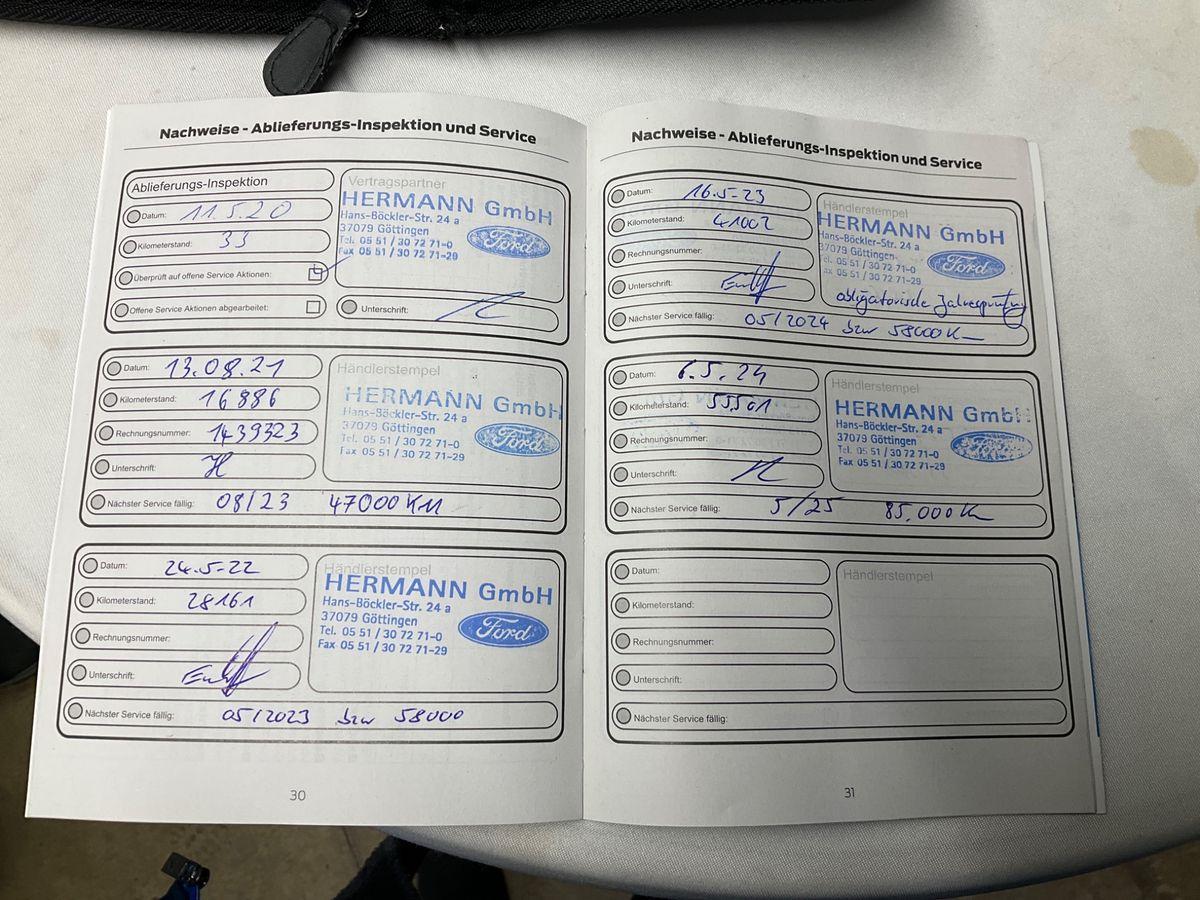 Nachweise - Ablieferungs-Inspektion und Service
Ablieferungs-Inspektion
Datum: 11.5.20
Kilometerstand: 33
Überprüft auf offene Service Aktionen:
Offene Service Aktionen abgearbeitet:
Vertragspartner
HERMANN GmbH
Hans-Böckler-Str. 24 a
37079 Göttingen
Tel. 05 51 / 30 72 71-0
Fax 05 51 / 30 72 71-29
Ford
Unterschrift:
Datum: 13.08.21
Kilometerstand: 16886
Rechnungsnummer: 1439323
Unterschrift:
Händlerstempel
HERMANN GmbH
Hans-Böckler-Str. 24 a
37079 Göttingen
Tel. 05 51 / 30 72 71-0
Fax 05 51 / 30 72 71-29
Ford
Nächster Service fällig: 08/23 47000 KM
Datum: 24.5-22
Kilometerstand: 28161
Rechnungsnummer:
Unterschrift:
Händlerstempel
HERMANN GmbH
Hans-Böckler-Str. 24 a
37079 Göttingen
Tel. 05 51 / 30 72 71-0
Fax 05 51 / 30 72 71-29
Ford
Nächster Service fällig: 05/2023 bzw 58000
30
Nachweise - Ablieferungs-Inspektion und Service
Datum: 16.5-23
Kilometerstand: 41002
Rechnungsnummer:
Unterschrift:
Händlerstempel
HERMANN GmbH
Hans-Böckler-Str. 24 a
37079 Göttingen
Tel. 05 51 / 30 72 71-0
Fax 05 51 / 30 72 71-29
Ford
obligatorische Jahresprüfung
Nächster Service fällig: 05/2024 bzw 58000 K
Datum: 6.5.24
Kilometerstand: 55501
Rechnungsnummer:
Unterschrift:
Händlerstempel
HERMANN GmbH
Hans-Böckler-Str. 24 a
37079 Göttingen
Tel. 05 51 / 30 72 71-0
Fax 05 51 / 30 72 71-29
Ford
Nächster Service fällig: 5/25 85.000 K
Datum:
Kilometerstand:
Rechnungsnummer:
Unterschrift:
Händlerstempel
Nächster Service fällig:
31